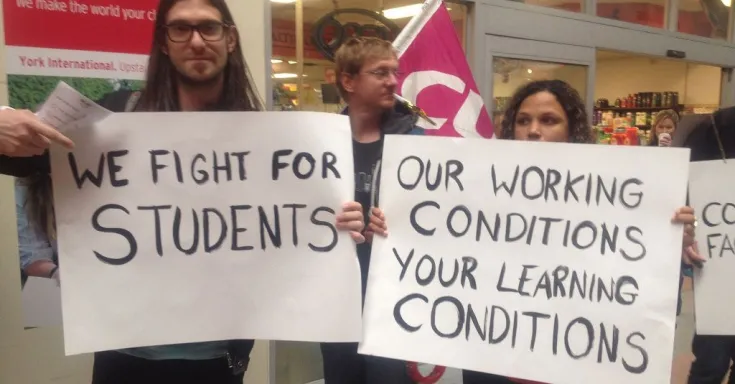 We make the world your c
York International. Upstairs
WE FIGHT FOR
STUDENTS
OUR WORKING
CONDITIONS
YOUR LEARNING
CONDITIONS
CO
FA
CU